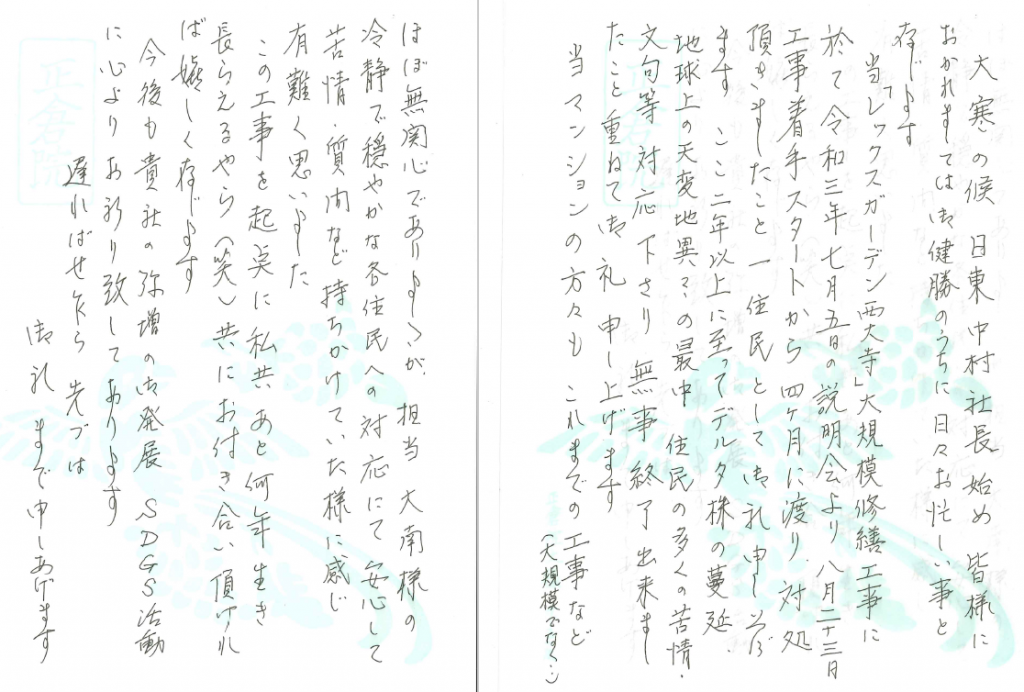 大寒の候 日東中村社長始め 皆様に
おかれましては御健勝のうちに日々お忙しい事と
存じます
当「レックスガーデン西大寺」大規模修繕工事に
於て令和三年七月五日の説明会より八月二十三日
工事着手スタートから四ヶ月に渡り対処
頂きましたこと一住民として御礼申し上げ
ます ここ二年以上に至ってデルタ株の蔓延
地球上の天変地異々の最中 住民の多くの苦情・
文句等対応下さり 無事終了出来まし
たこと重ねて御礼申し上げます
当マンションの方々も これまでの工事など
(大規模でなく…)
ほぼ無関心でありましたが 担当 大南様の
冷静で穏やかな各住民への対応にて安心して
苦情・質問など持ちかけていた様に感じ
有難く思いました
この工事を起点に私共あと何年生き
長らえるやら(笑)共にお付き合い頂ければ
ば嬉しく存じます
今後も貴社の弥増の御発展 SDGS活動
に心よりお祈り致してあります
遅ればせ乍ら 先づは
御礼まで申しあげます
正倉院
正倉院